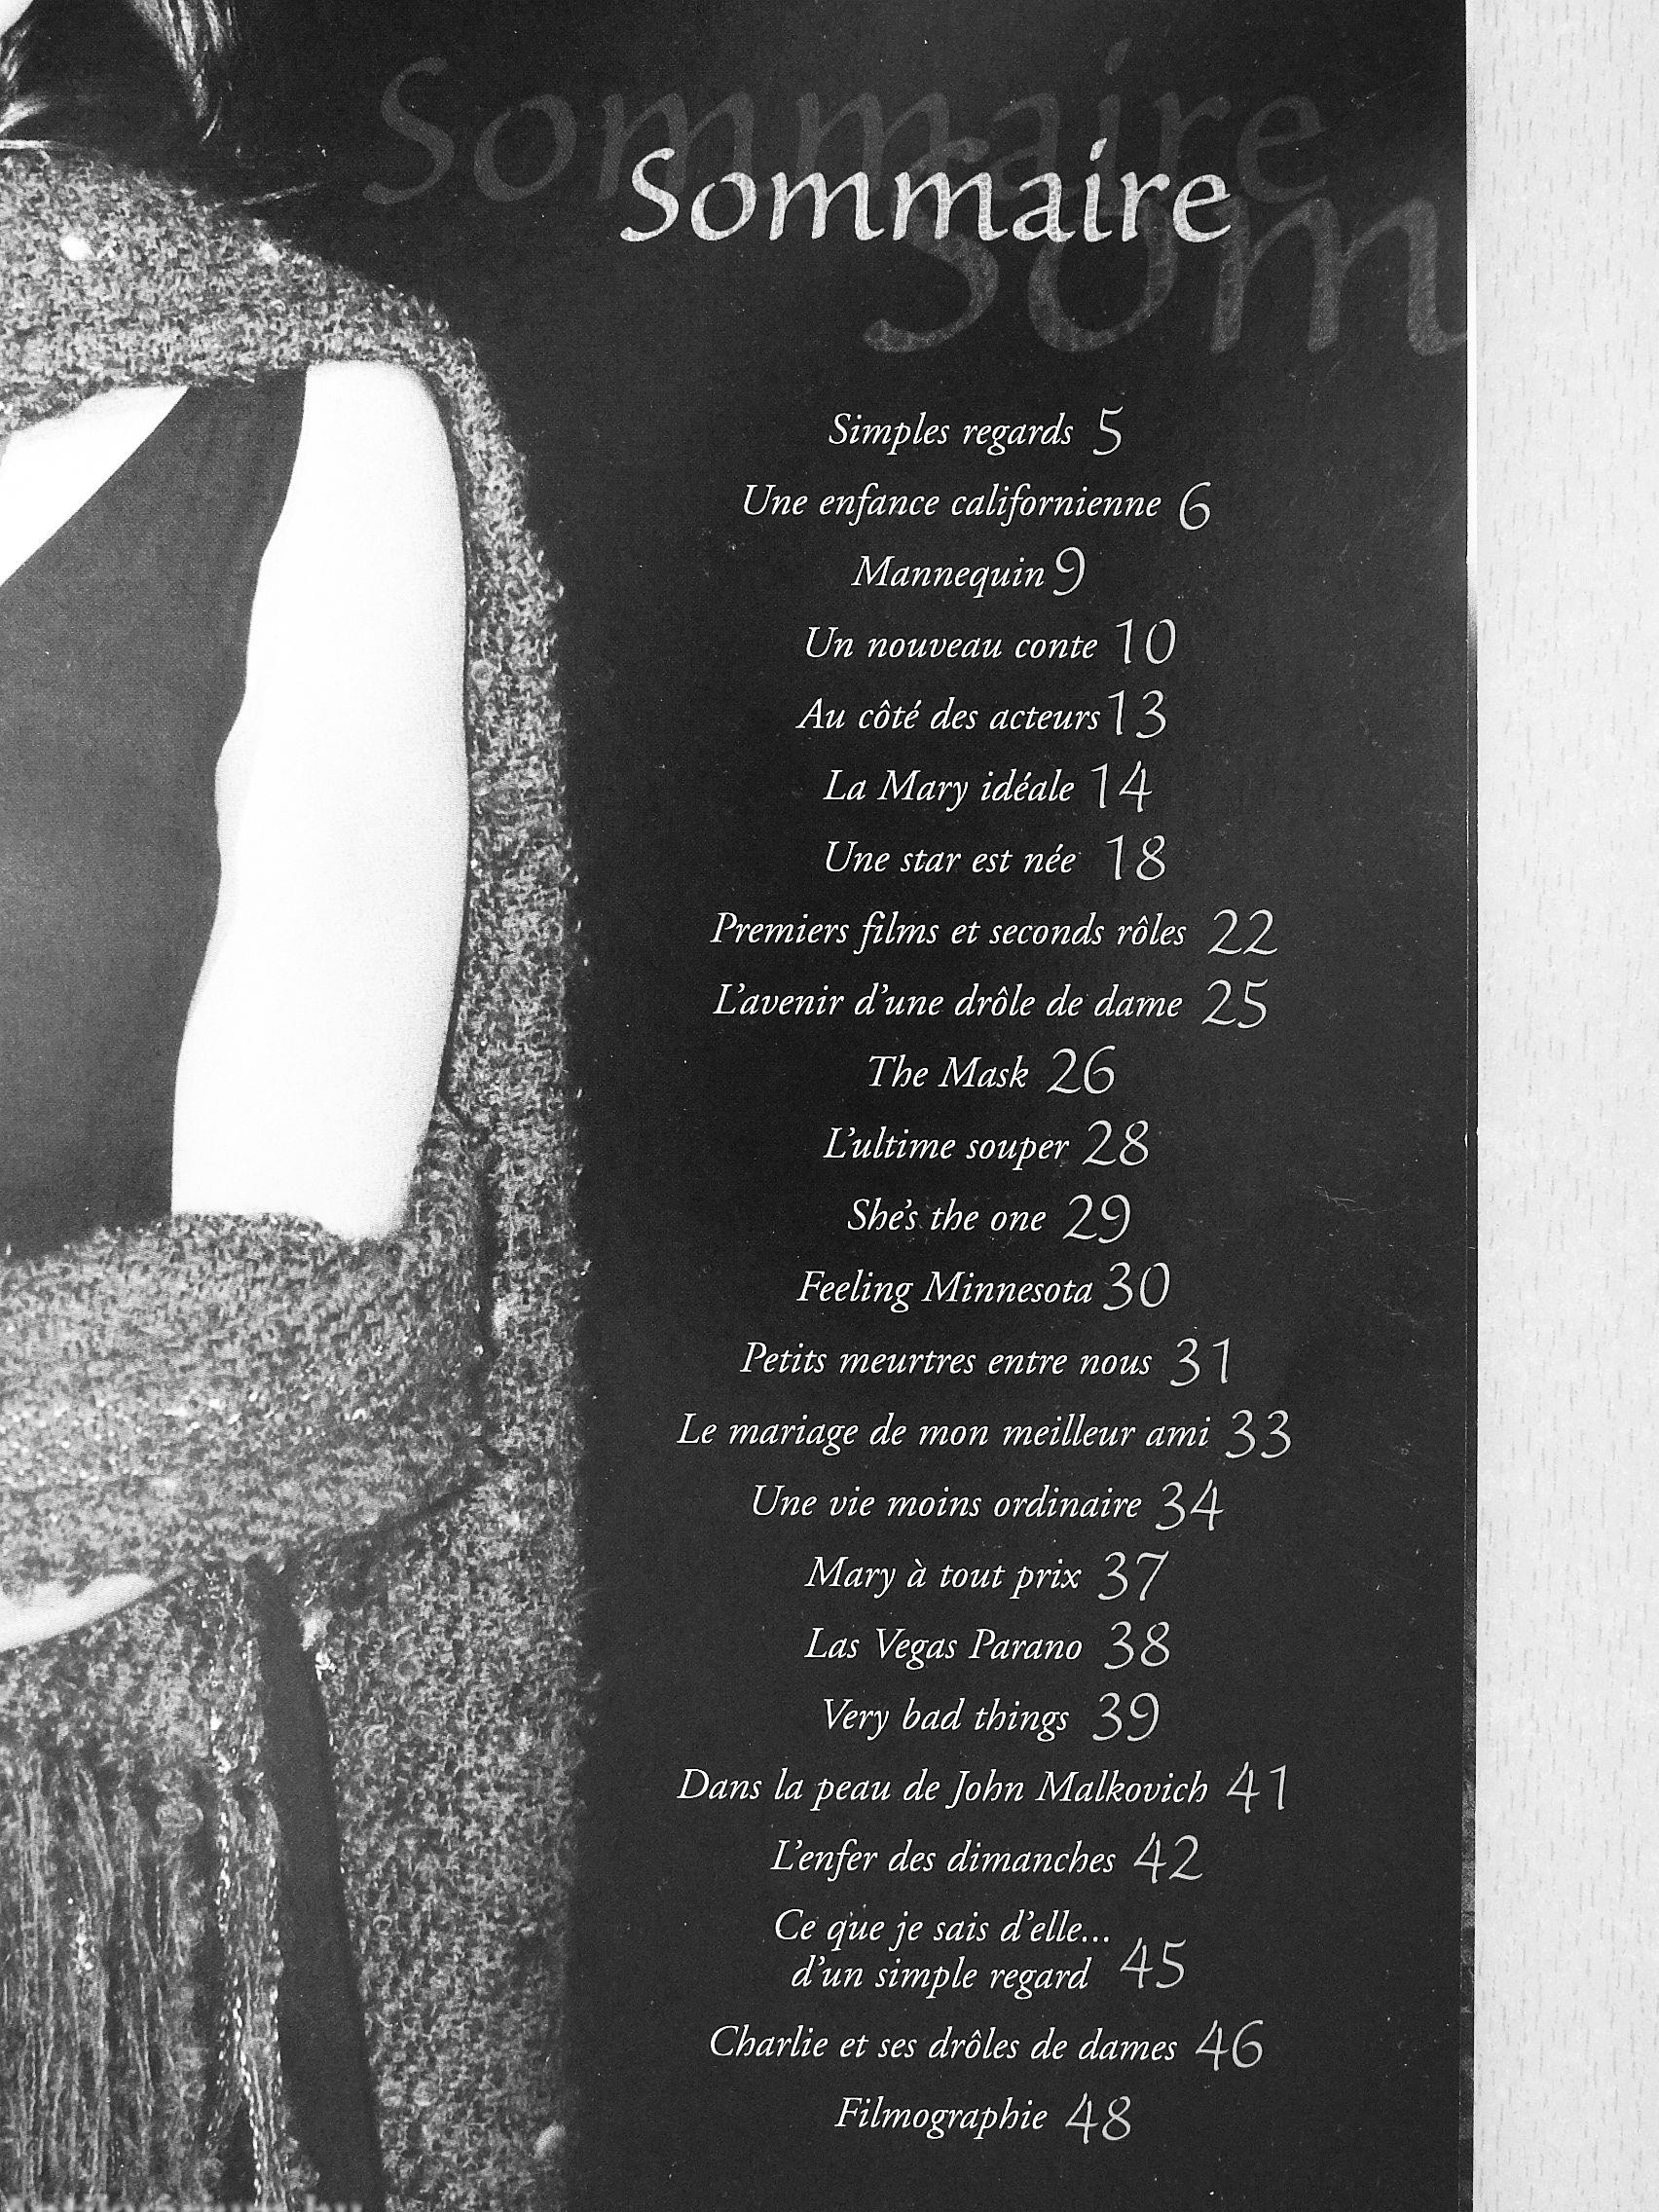 Sommaire
Sommaire
Som
Simples regards 5
Une enfance californienne 6
Mannequin 9
Un nouveau conte 10
Au côté des acteurs 13
La Mary idéale 14
Une star est née 18
Premiers films et seconds rôles 22
L'avenir d'une drôle de dame 25
The Mask 26
L'ultime souper 28
She's the one 29
Feeling Minnesota 30
Petits meurtres entre nous 31
Le mariage de mon meilleur ami 33
Une vie moins ordinaire 34
Mary à tout prix 37
Las Vegas Parano 38
Very bad things 39
Dans la peau de John Malkovich 41
L'enfer des dimanches 42
Ce que je sais d'elle...
d'un simple regard 45
Charlie et ses drôles de dames 46
Filmographie 48